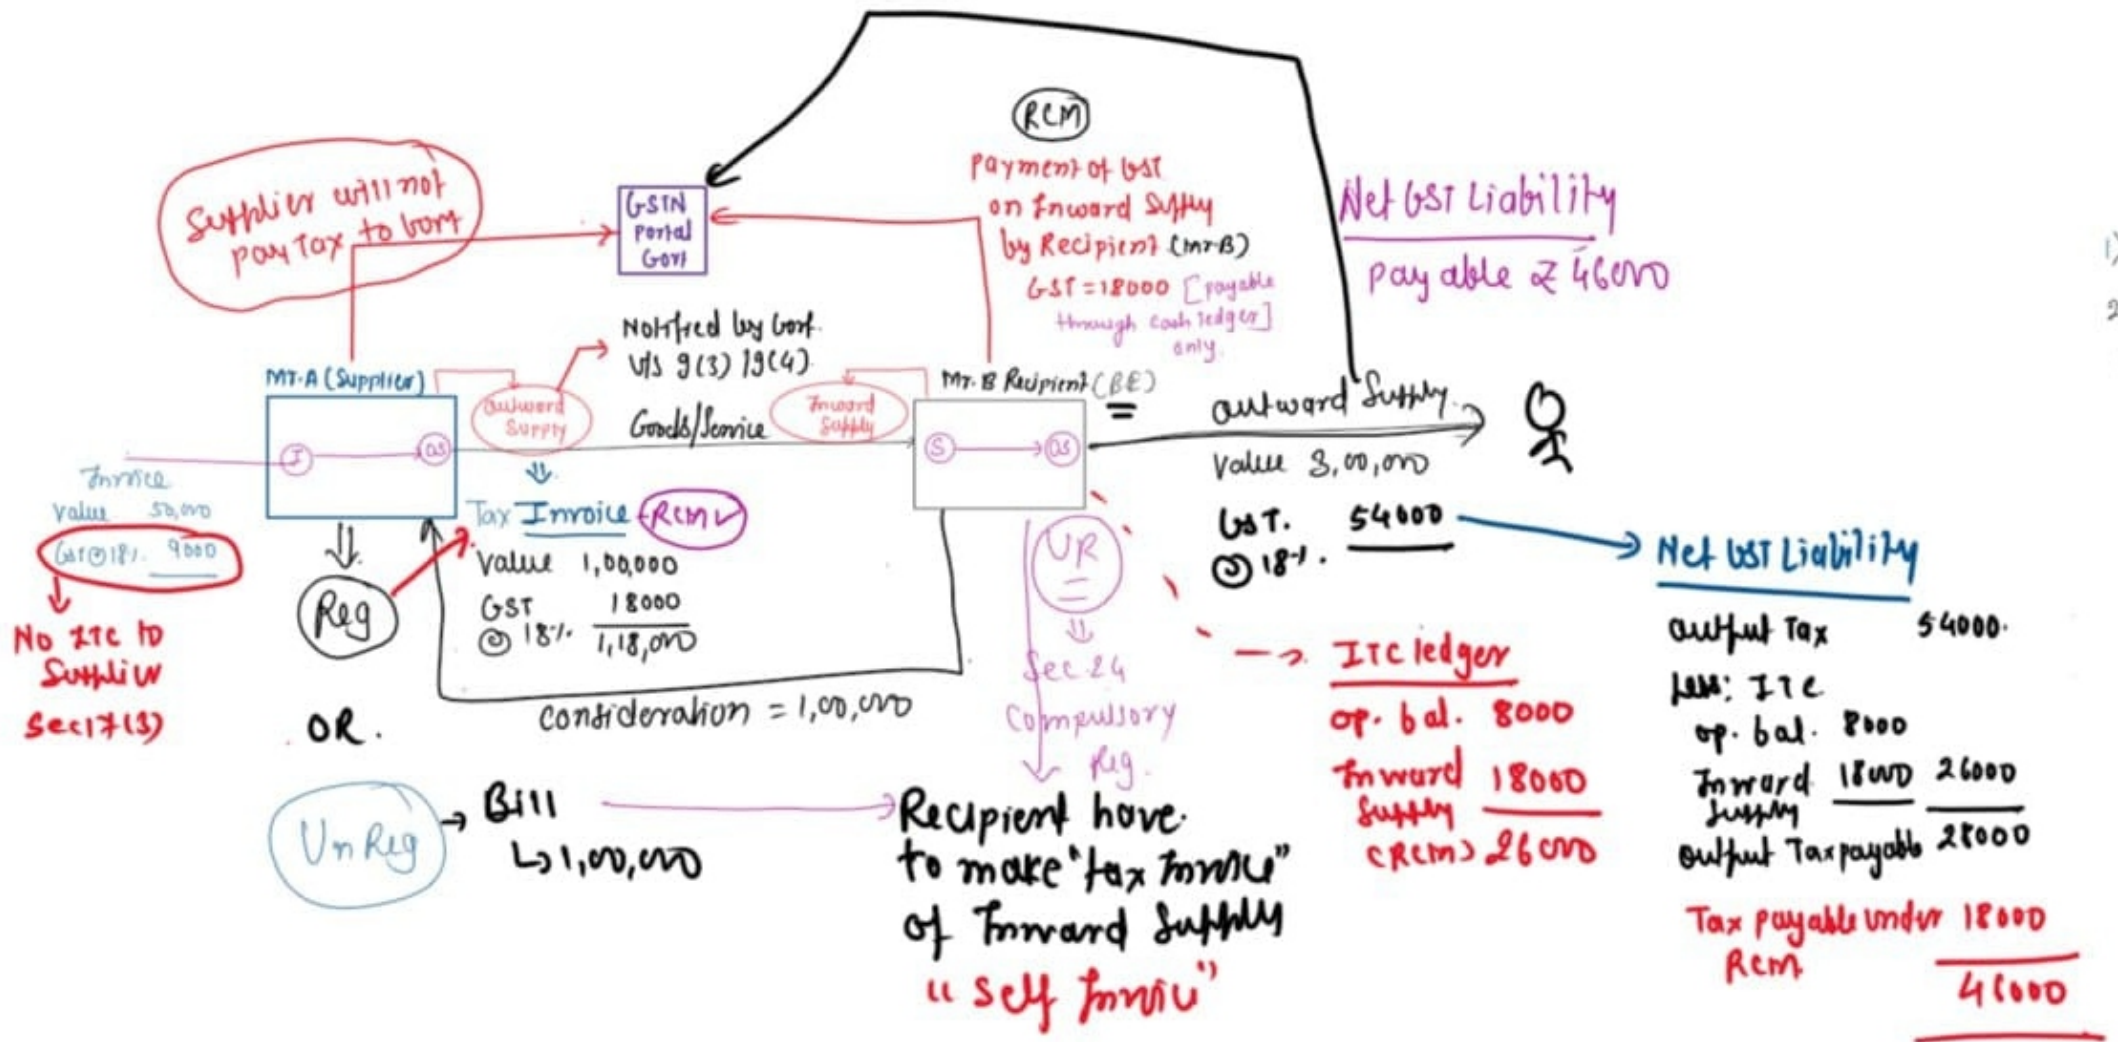 RCM
Supplier will not
pay Tax to Govt
GSTN
Portal
Govt
Payment of GST
on Inward Supply
by Recipient (Mr.B)
GST = 18000 [payable
through cash ledger]
only.
Net GST Liability
payable ₹ 46000
1)
2
Notified by Govt.
U/s 9(3) 19(4)
Mr.A (Supplier)
Outward
Supply
Goods/Service
Inward
Supply
Mr. B Recipient (BE)
Outward Supply
I
OS
S
OS
Invoice
Value 50,000
GST @ 18%. 9000
No ITC to
Supplier
Sec 17(3)
Tax Invoice RCM ✓
Value 1,00,000
GST 18000
@ 18%. 1,18,000
Reg
OR.
Consideration = 1,00,000
UnReg
Bill
↳ 1,00,000
UR
Sec.24
Compulsory
Reg.
Recipient have
to make "tax Invoice"
of Inward Supply
"Self Invoice"
Value 3,00,000
GST. 54000
@ 18%.
ITC ledger
op. bal. 8000
Inward 18000
Supply
(RCM) 26000
Net GST Liability
Output Tax 54000.
Less: ITC
op. bal. 8000
Inward 18000 26000
Supply
Output Tax payable 28000
Tax payable under 18000
RCM
46000